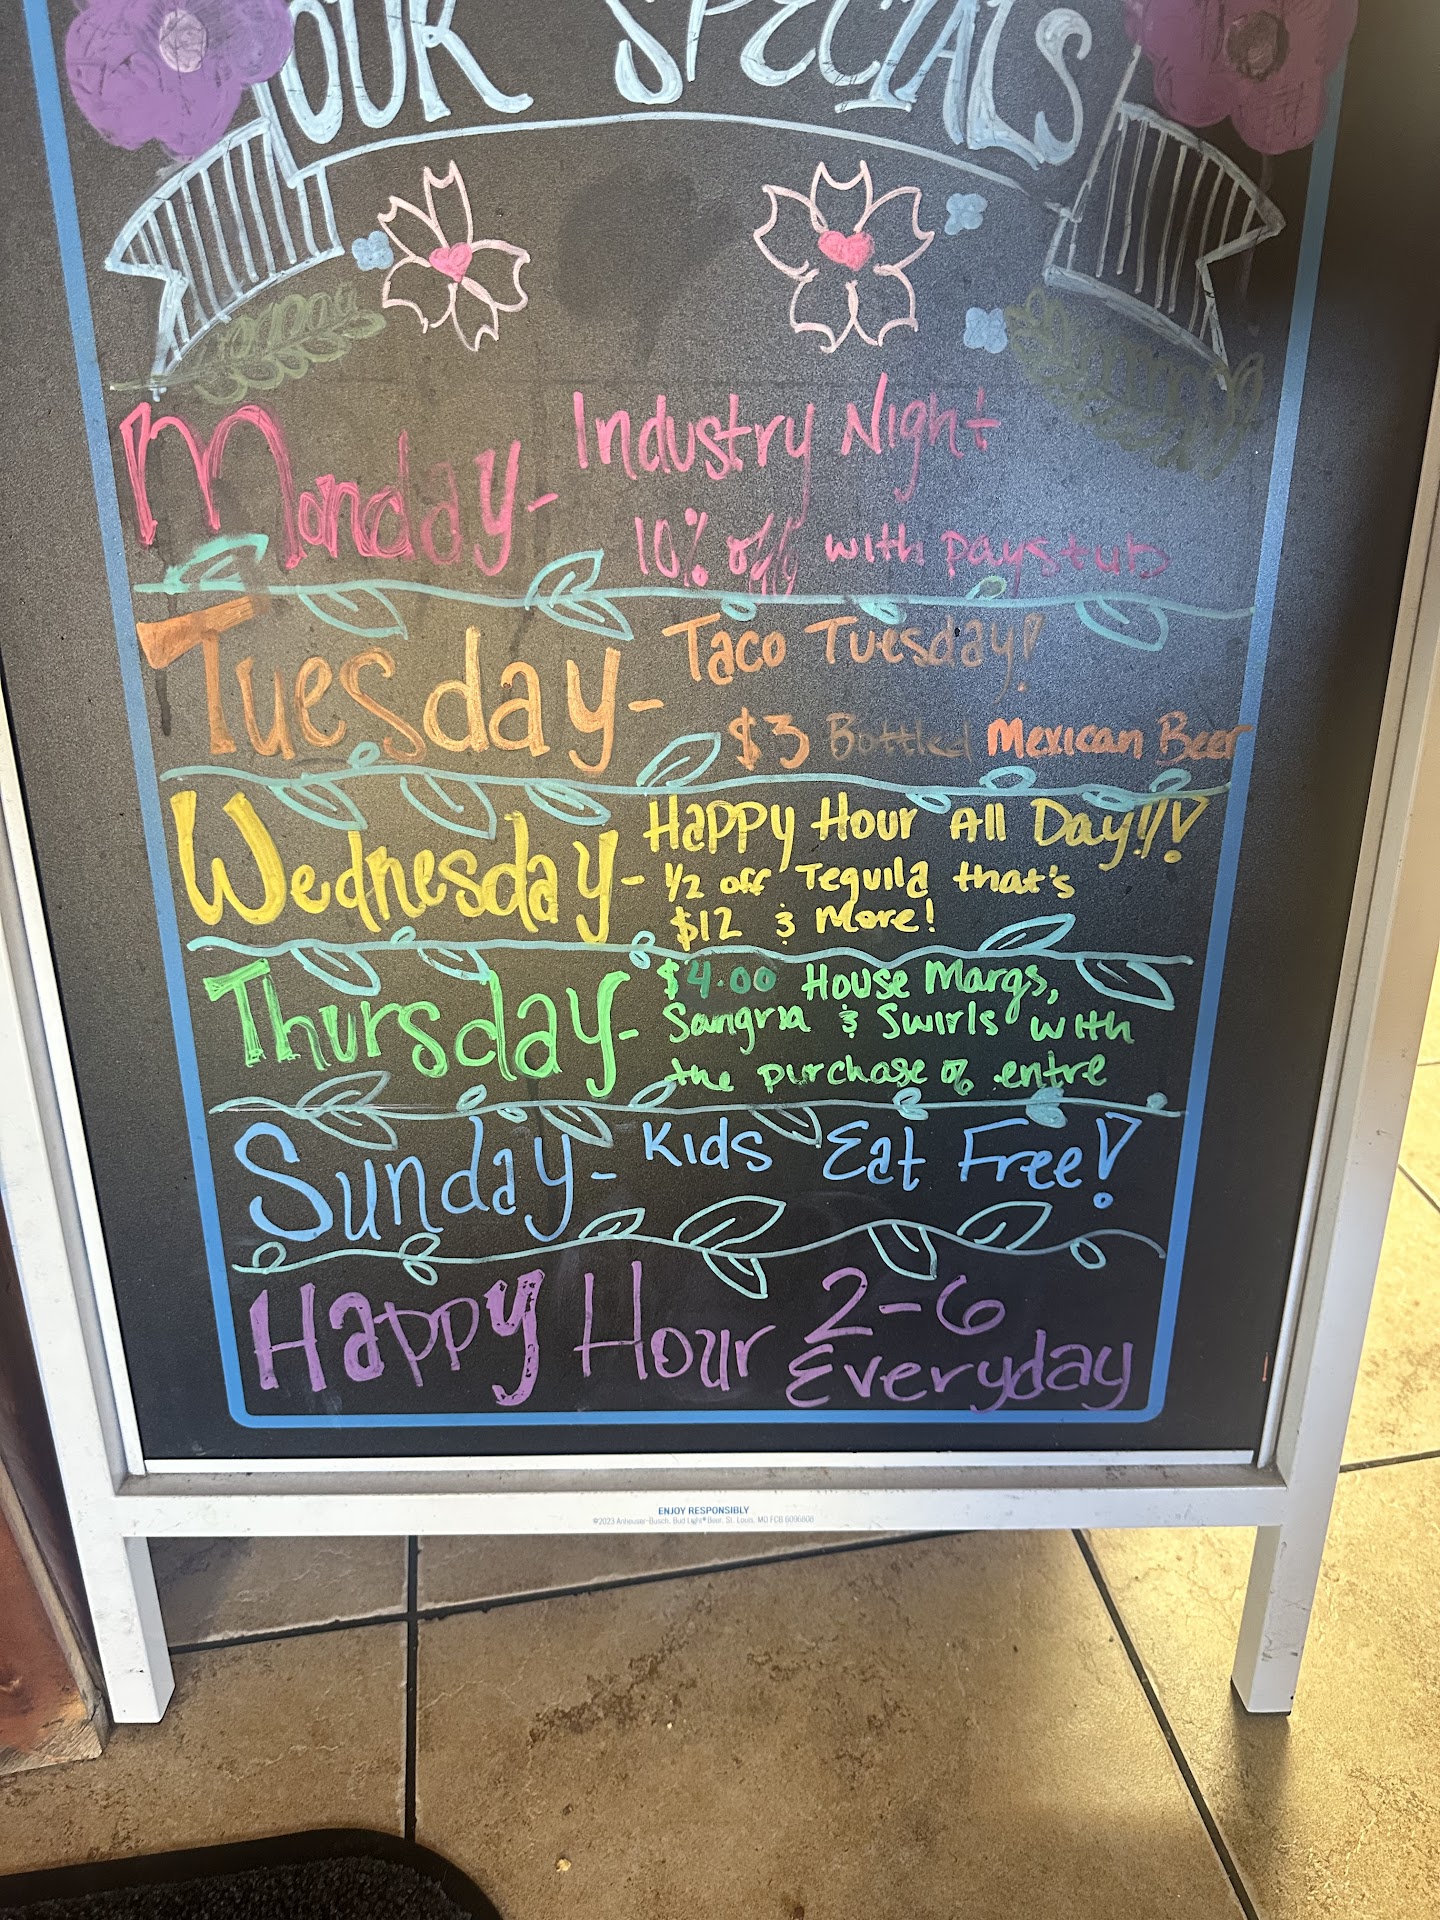 OUR SPECIALS
Monday- Industry Night
10% off with paystub
Tuesday- Taco Tuesday!
$3 Bottled Mexican Beer
Wednesday- Happy Hour All Day!!!
1/2 off Tequila that's
$12 & More!
Thursday- $4.00 House Margs,
Sangria & Swirls with
the purchase of entre
Sunday- Kids Eat Free!
Happy Hour 2-6
Everyday
ENJOY RESPONSIBLY
©2023 Anheuser-Busch, Bud Light® Beer, St. Louis, MO